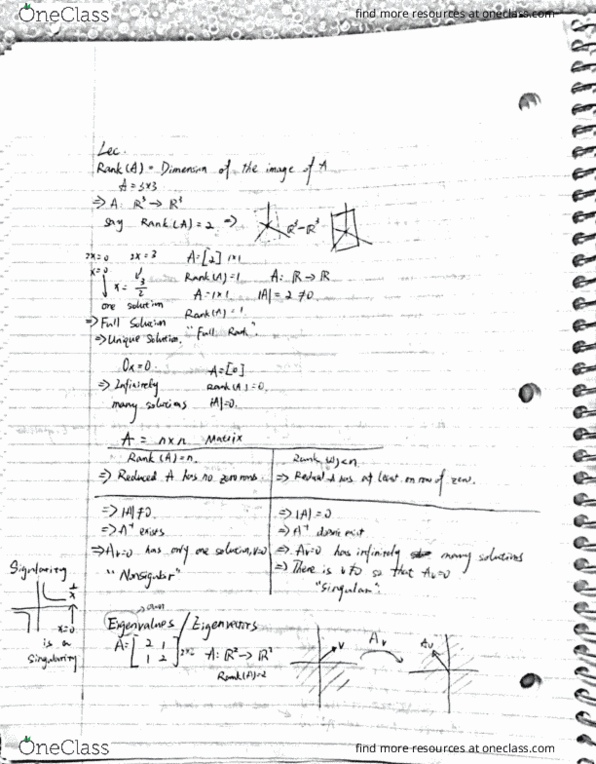 OneClass
find more resources at oneclass.com
Lec.
Rank(A) = Dimension of the image of A
A = 3x3
⇒ A: R³ → R³
say Rank(A) = 2 ⇒ R³ - R³
2x=0 2x=3 A=[2] 1x1
x=0 x=3/2 Rank(A)=1 A: R → R
A=1x1 |A|=2≠0
one solution Rank(A)=1
⇒ Full Solution "Full Rank".
⇒ Unique Solution.
0x=0 A=[0]
⇒ Infinitely Rank(A)=0
many solutions |A|=0.
A = nxn Matrix
Rank(A)=n. Rank(A)<n
⇒ Reduced A has no zero rows. ⇒ Reduced A has at least on row of zero.
⇒ |A|≠0. ⇒ |A|=0
⇒ A⁻¹ exists ⇒ A⁻¹ exist
⇒ Av=0 has only one solution, v=0 ⇒ Av=0 has infinitely many solutions
"Nonsigular" ⇒ There is v≠0 so that Av=0
"Singular".
Signlarity
1/x
x=0
is a
singularity
own
Eigenvalues / Eigenvectors
A=[2 1
1 2] 2x2 A: R² → R²
Rank(A)=2
v Av Av
OneClass
find more resources at oneclass.com